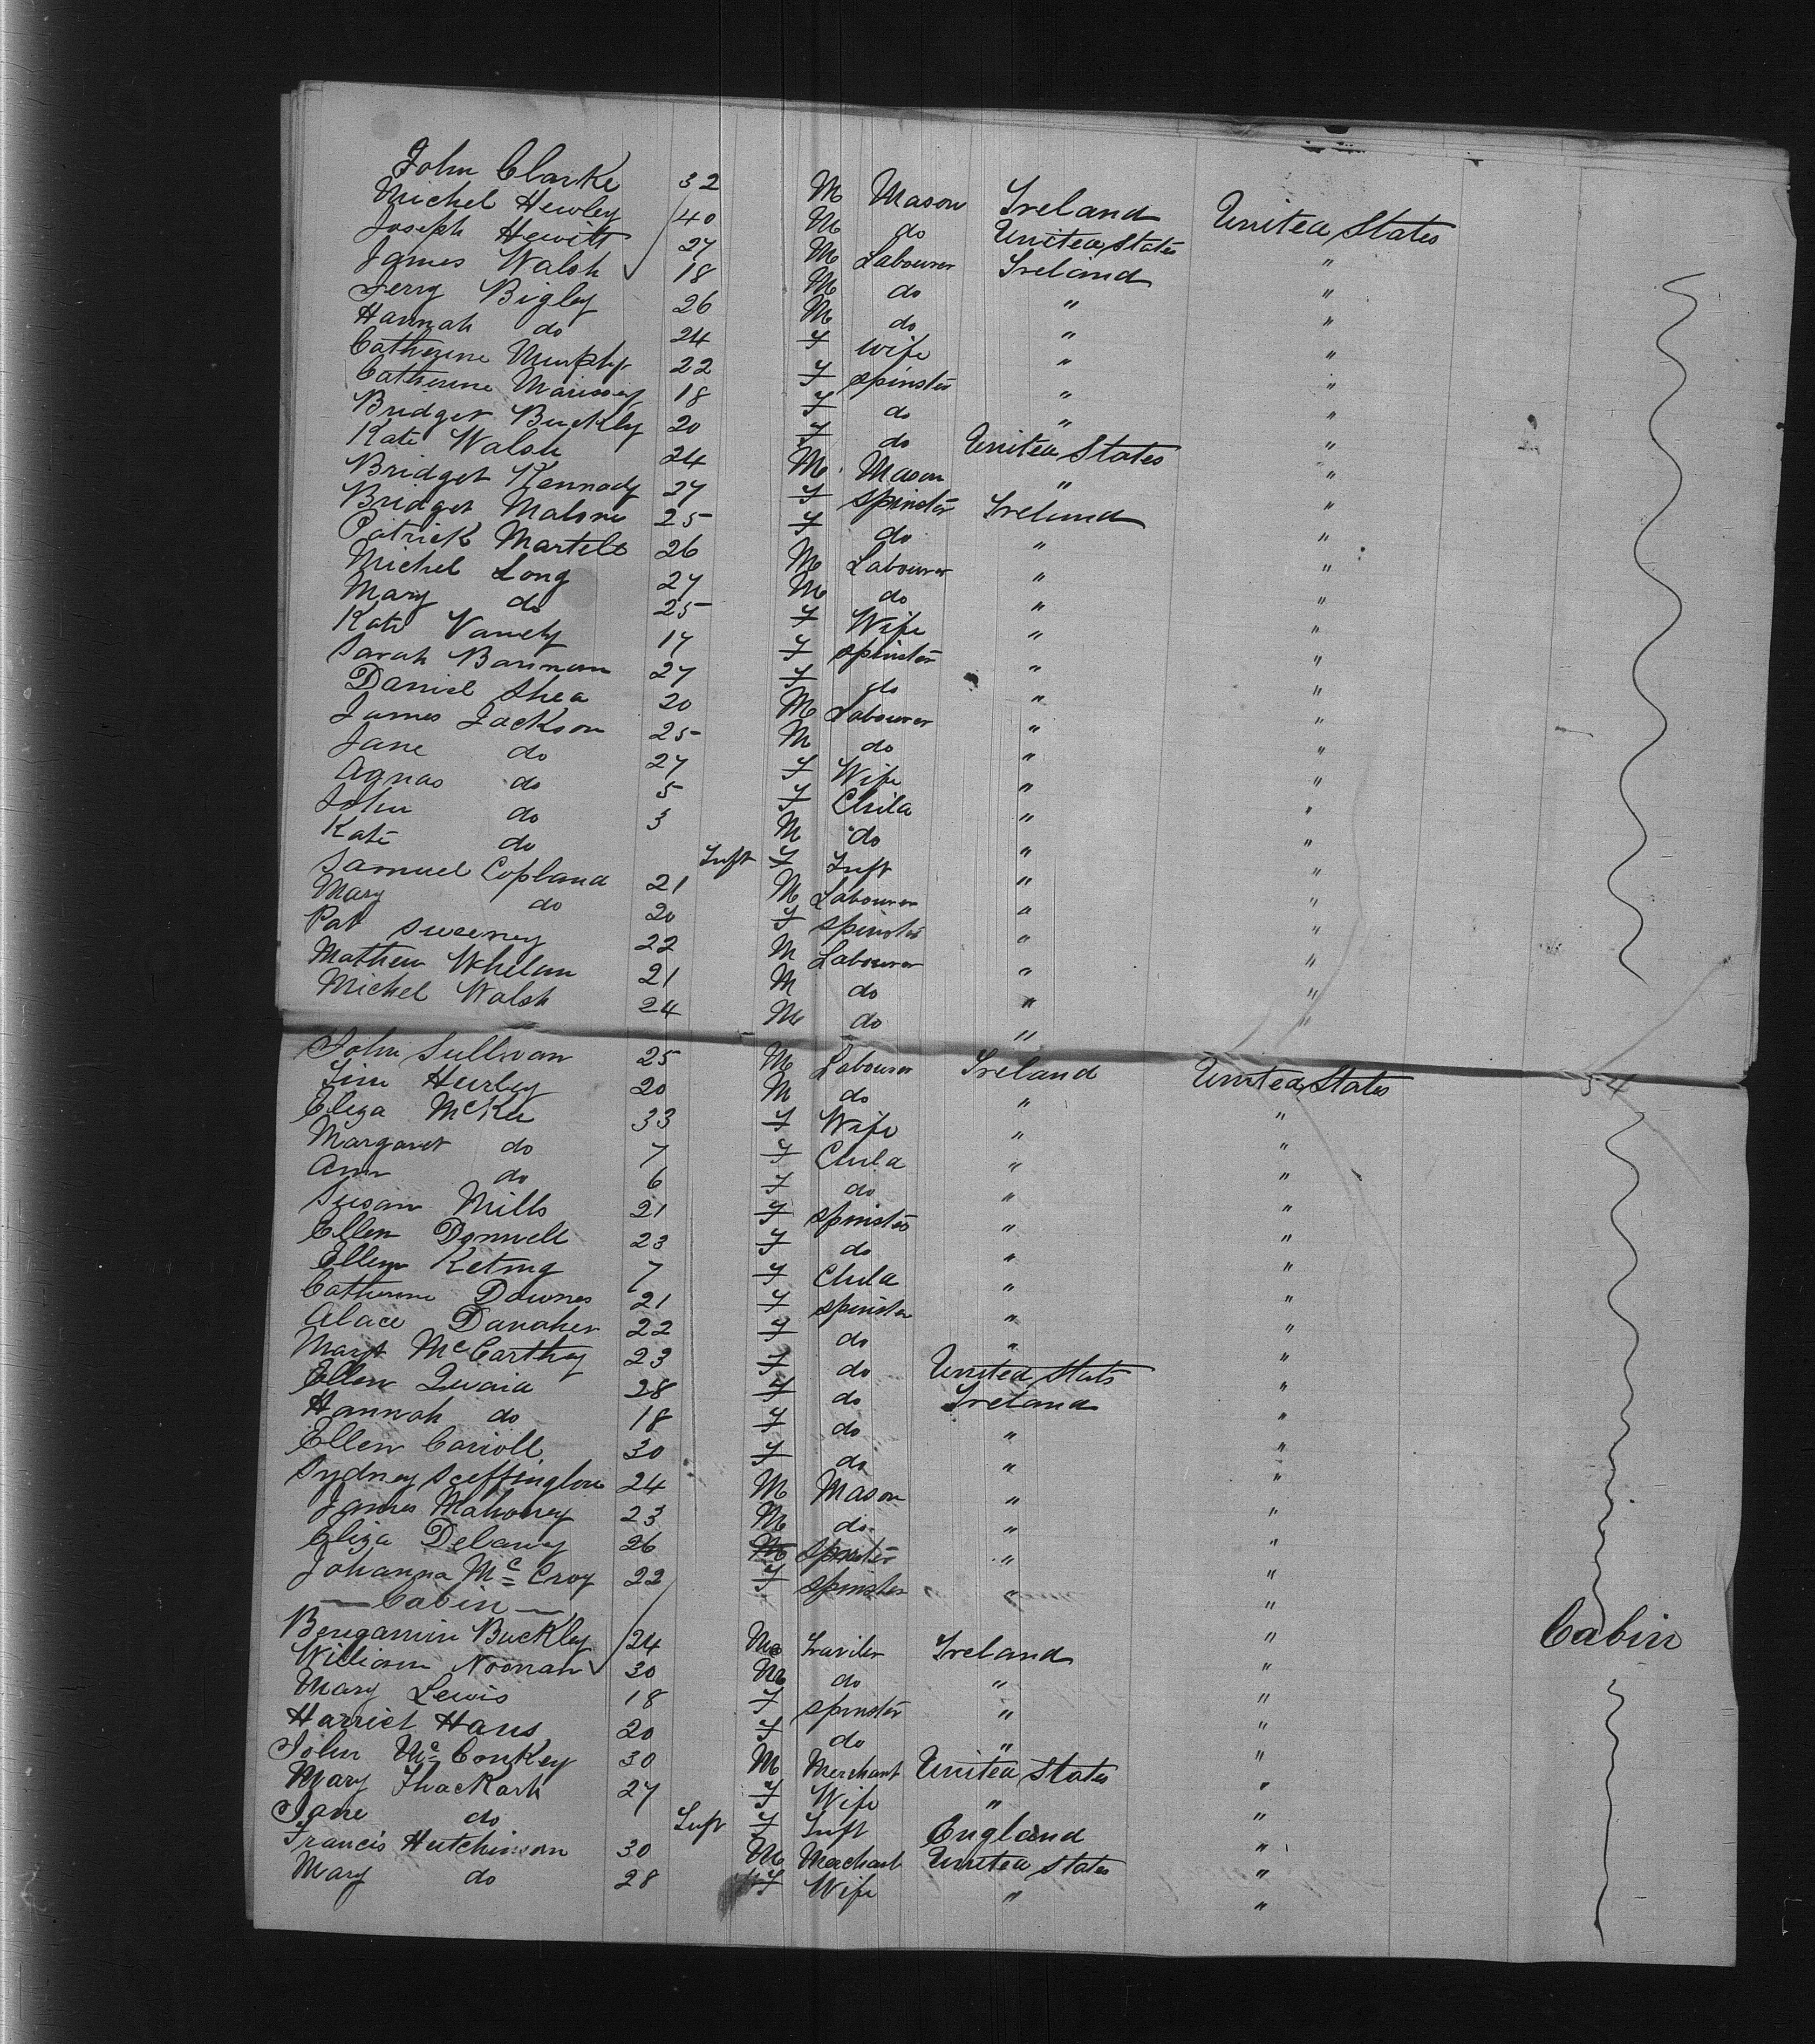 John Clarke 32 M Mason Ireland United States
Michel Hewley 40 M do United States "
Joseph Hewitt 27 M Labourer Ireland "
James Walsh 18 M do " "
Jerry Bigley 26 M do " "
Hannah do 24 F Wife " "
Catherine Murphy 22 F Spinster " "
Catherine 18 F do " "
Bridget Buckly 20 F do United States "
Kate Walsh 24 M Mason " "
Bridget Kennady 27 F Spinster Ireland "
Bridget Malone 25 F do " "
Patrick Martell 26 M Labourer " "
Michel Long 27 M do " "
Mary do 25 F Wife " "
Kate 17 F Spinster " "
Sarah Bannon 27 F do " "
Daniel Shea 20 M Labourer " "
James Jackson 25 M do " "
Jane do 27 F Wife " "
Agnas do 5 F Child " "
John do 3 M do " "
Kate do Inft F Inft " "
Samuel Copland 21 M Labourer " "
Mary do 20 F Spinster " "
Pat Sweeney 22 M Labourer " "
Mathew Whelan 21 M do " "
Michel Walsh 24 M do " "
John Sullivan 25 M Labourer Ireland United States 54
Tim Hurley 20 M do " "
Eliza McKee 33 F Wife " "
Margaret do 7 F Child " "
Ann do 6 F do " "
Susan Mills 21 F Spinster " "
Ellen Donnell 23 F do " "
Ellen Keting 7 F Child " "
Catherine Downes 21 F Spinster " "
Alace Danaher 22 F do " "
Margt McCarthy 23 F do United States "
Ellen 28 F do Ireland "
Hannah do 18 F do " "
Ellen Carroll 30 F do " "
Sydney Sceffington 24 M Mason " "
James Mahoney 23 M do " "
Eliza Delany 26 M Spinster " "
Johanna McCroy 22 F Spinster " "
— Cabin —
Bengamin Buckley 24 M Traviler Ireland " Cabin
William Noonan 30 M do " "
Mary Lewis 18 F Spinster " "
Harriet Haus 20 F do " "
John McConkey 30 M Merchant United States "
Mary Thackark 27 F Wife " "
Jane do Inft F Inft England "
Francis Hutchinson 30 M Merchant United States "
Mary do 28 F Wife " "